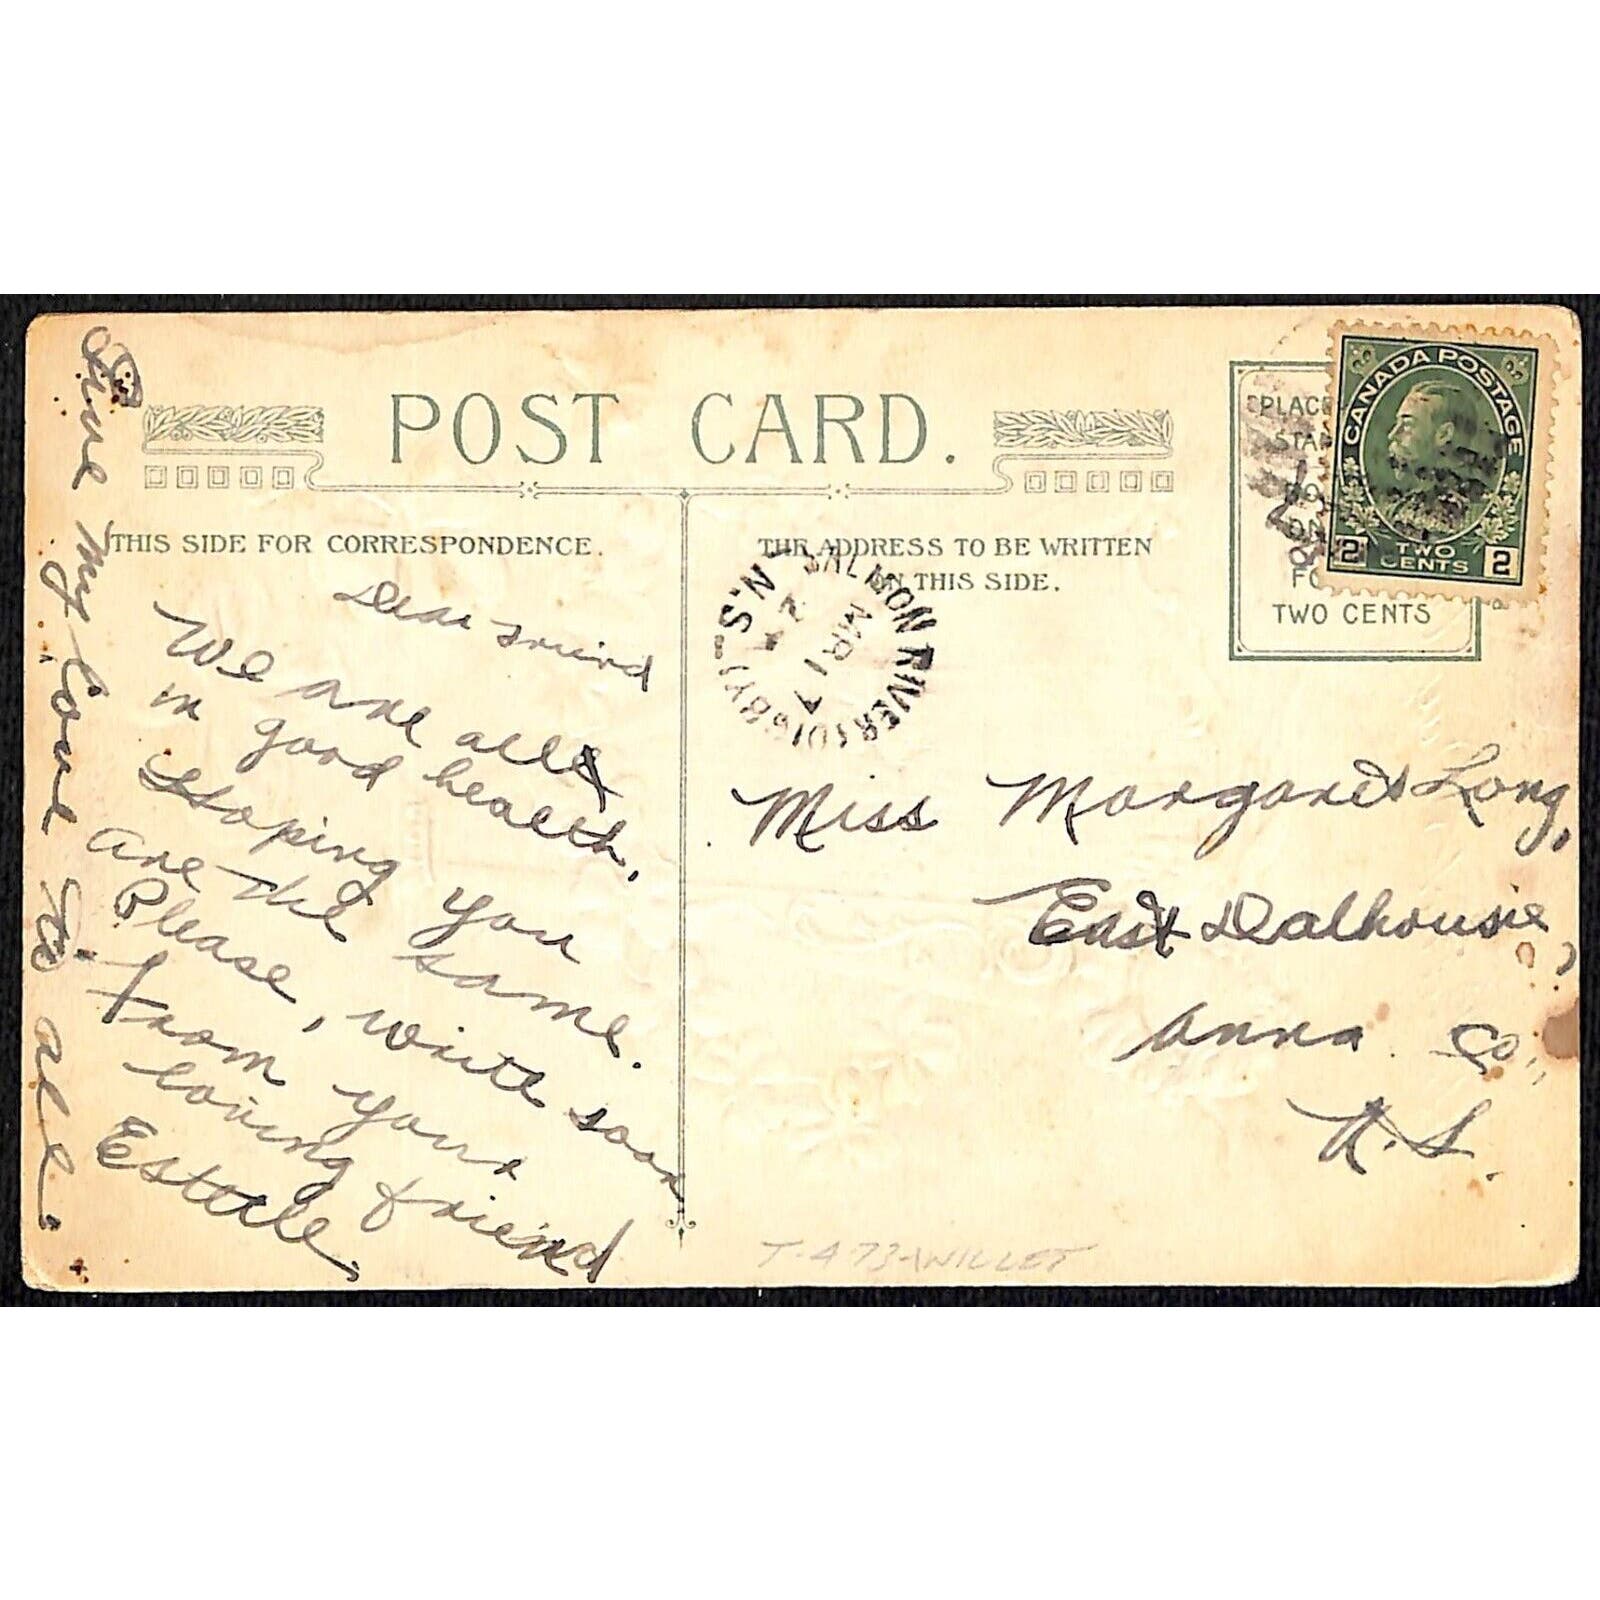 POST CARD.
THIS SIDE FOR CORRESPONDENCE.
THE ADDRESS TO BE WRITTEN
ON THIS SIDE.
PLACE
STA
FO
TWO CENTS
CANADA POSTAGE
2 TWO CENTS 2
SALMON RIVER (DIGBY) N.S.
MR 17
Dear Friend
We are all
in good health,
Hoping you
are the same.
Please, write soon
From your
loving friend
Estelle.
Give My Love to all.
Miss Margaret Long,
East Dalhousie,
Anna. Co.,
N.S.
T-473-WILLET